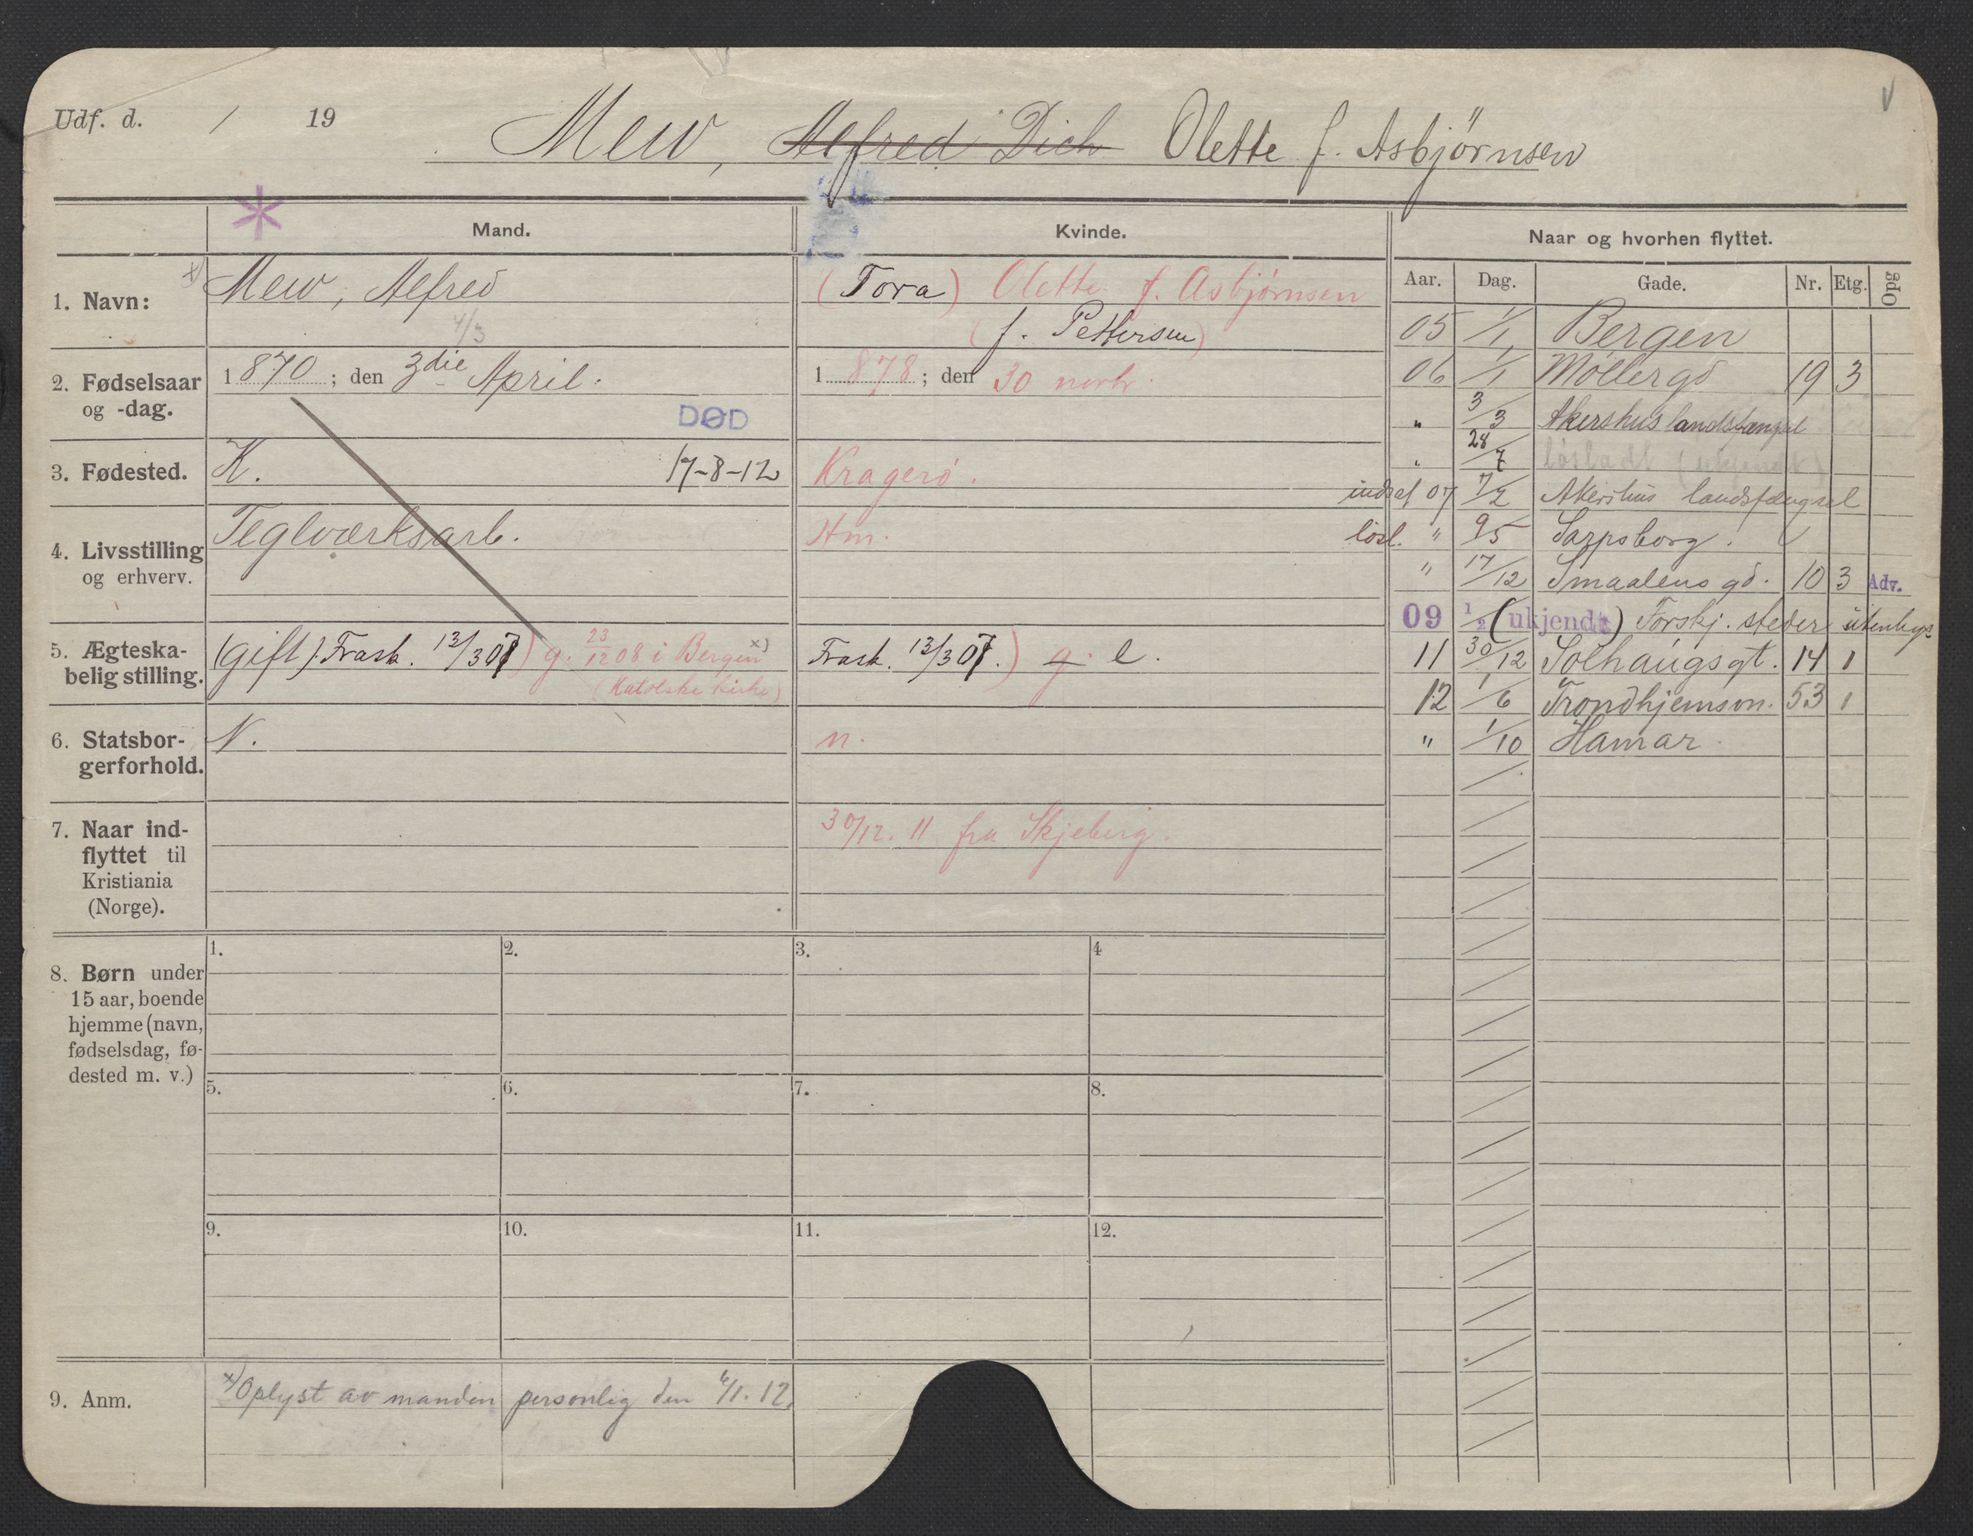 Udf. d. / 19
Mew, Alfred Dich Olette f. Asbjørnsen
V
Mand. Kvinde. Naar og hvorhen flyttet.
Aar. Dag. Gade. Nr. Etg. Opg
1. Navn: x) Mew, Alfred (Tora) Olette f. Asbjørnsen
4/3 (f. Pettersen)
2. Fødselsaar og -dag. 1870; den 3die April. 1878; den 30 novbr.
DØD
3. Fødested. K. 17-8-12 Kragerø.
4. Livsstilling og erhverv. Teglværksarb. Hm.
5. Ægteska-
belig stilling. (gift). Frask. 13/3 07) g. 23/12 08 i Bergen x) Frask. 13/3 07.) g. e.
(Katolske kirke)
6. Statsbor-
gerforhold. N. n.
7. Naar ind-
flyttet til
Kristiania
(Norge).
30/12. 11 fra Skjeberg.
05 1/1 Bergen
06 1/1 Møllergd 19 3
" 3/3 Akershus landsfængsel
" 28/7 løsladt (ukjendt)
indsat 07 7/2 Akershus landsfængsel
løsl. " 9/5 Sarpsborg.
" 17/12 Smaalensgd. 10 3 Adv.
09 1/2 (ukjendt) Forskj. steder utenbys
11 30/12 Solhaugsgt. 14 1
12 1/6 Trondhjemsvn. 53 1
" 1/10 Hamar.
8. Børn under
15 aar, boende
hjemme (navn,
fødselsdag, fø-
dested m. v.)
1. 2. 3. 4
5. 6. 7. 8.
9. 10. 11. 12.
9. Anm. x) Oplyst av manden personlig den 6/1. 12.